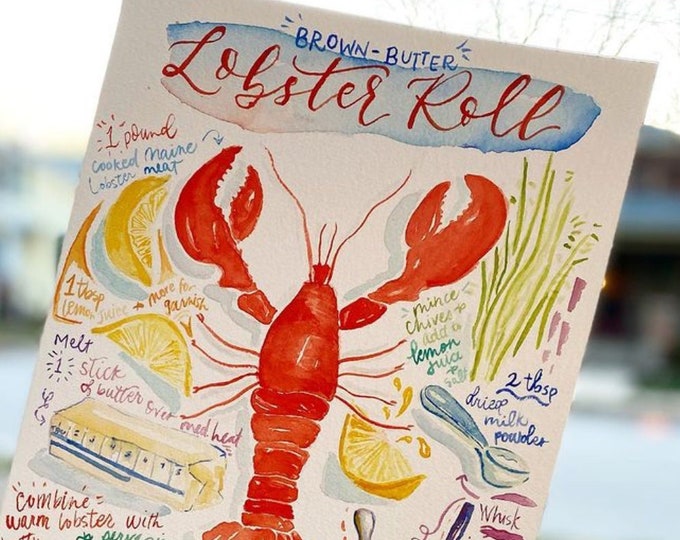 BROWN-BUTTER
Lobster Roll
1 pound
cooked Maine
Lobster meat
1 tbsp
lemon juice + more for
garnish
mince
chives +
add to
lemon
juice
+
salt
Melt
1 stick
of butter over med heat
1 2 3 4 5 6 7
2 tbsp
milk
powder
Whisk
combine
warm lobster with